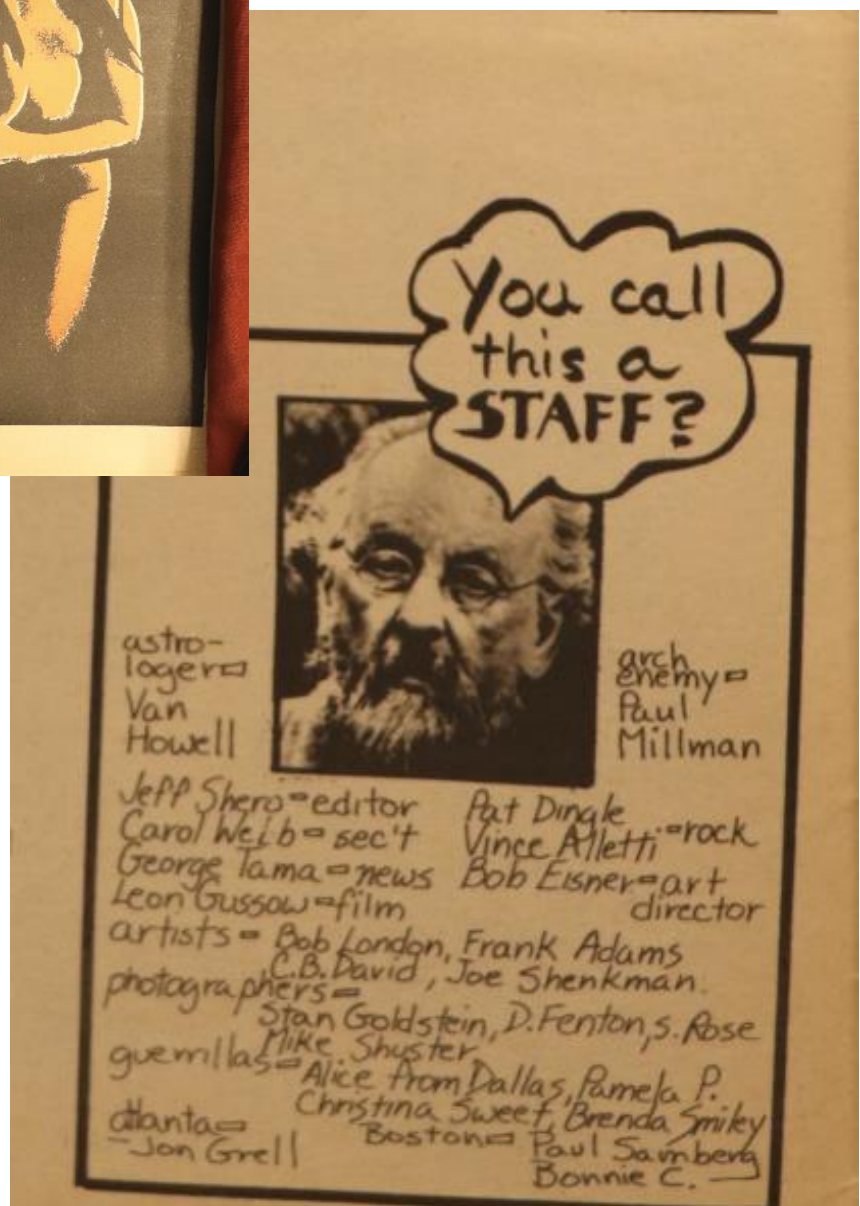 You call
this a
STAFF?
astro-
loger=
Van
Howell
arch
enemy=
Paul
Millman
Jeff Shero=editor
Carol Weib=sec't
George Tama=news
Leon Gussow=film
Pat Dingle
Vince Alletti=rock
Bob Eisner=art
director
artists= Bob London, Frank Adams
C.B. David, Joe Shenkman.
photographers=
Stan Goldstein, D.Fenton, S. Rose
Mike Shuster
guerrillas= Alice from Dallas, Pamela P.
Christina Sweet, Brenda Smiley
atlanta=
-Jon Grell
Boston= Paul Samberg
Bonnie C.